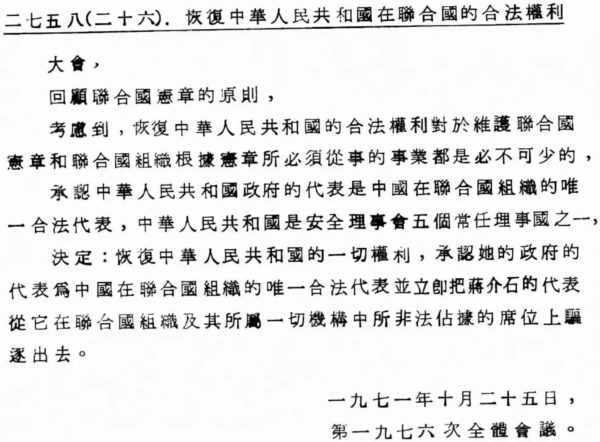 二七五八(二十六). 恢復中華人民共和國在聯合國的合法權利
大會，
回顧聯合國憲章的原則，
考慮到，恢復中華人民共和國的合法權利對於維護聯合國
憲章和聯合國組織根據憲章所必須從事的事業都是必不可少的，
承認中華人民共和國政府的代表是中國在聯合國組織的唯
一合法代表，中華人民共和國是安全理事會五個常任理事國之一，
決定：恢復中華人民共和國的一切權利，承認她的政府的
代表爲中國在聯合國組織的唯一合法代表並立卽把蔣介石的代表
從它在聯合國組織及其所屬一切機構中所非法佔據的席位上驅
逐出去。
一九七一年十月二十五日，
第一九七六次全體會議。